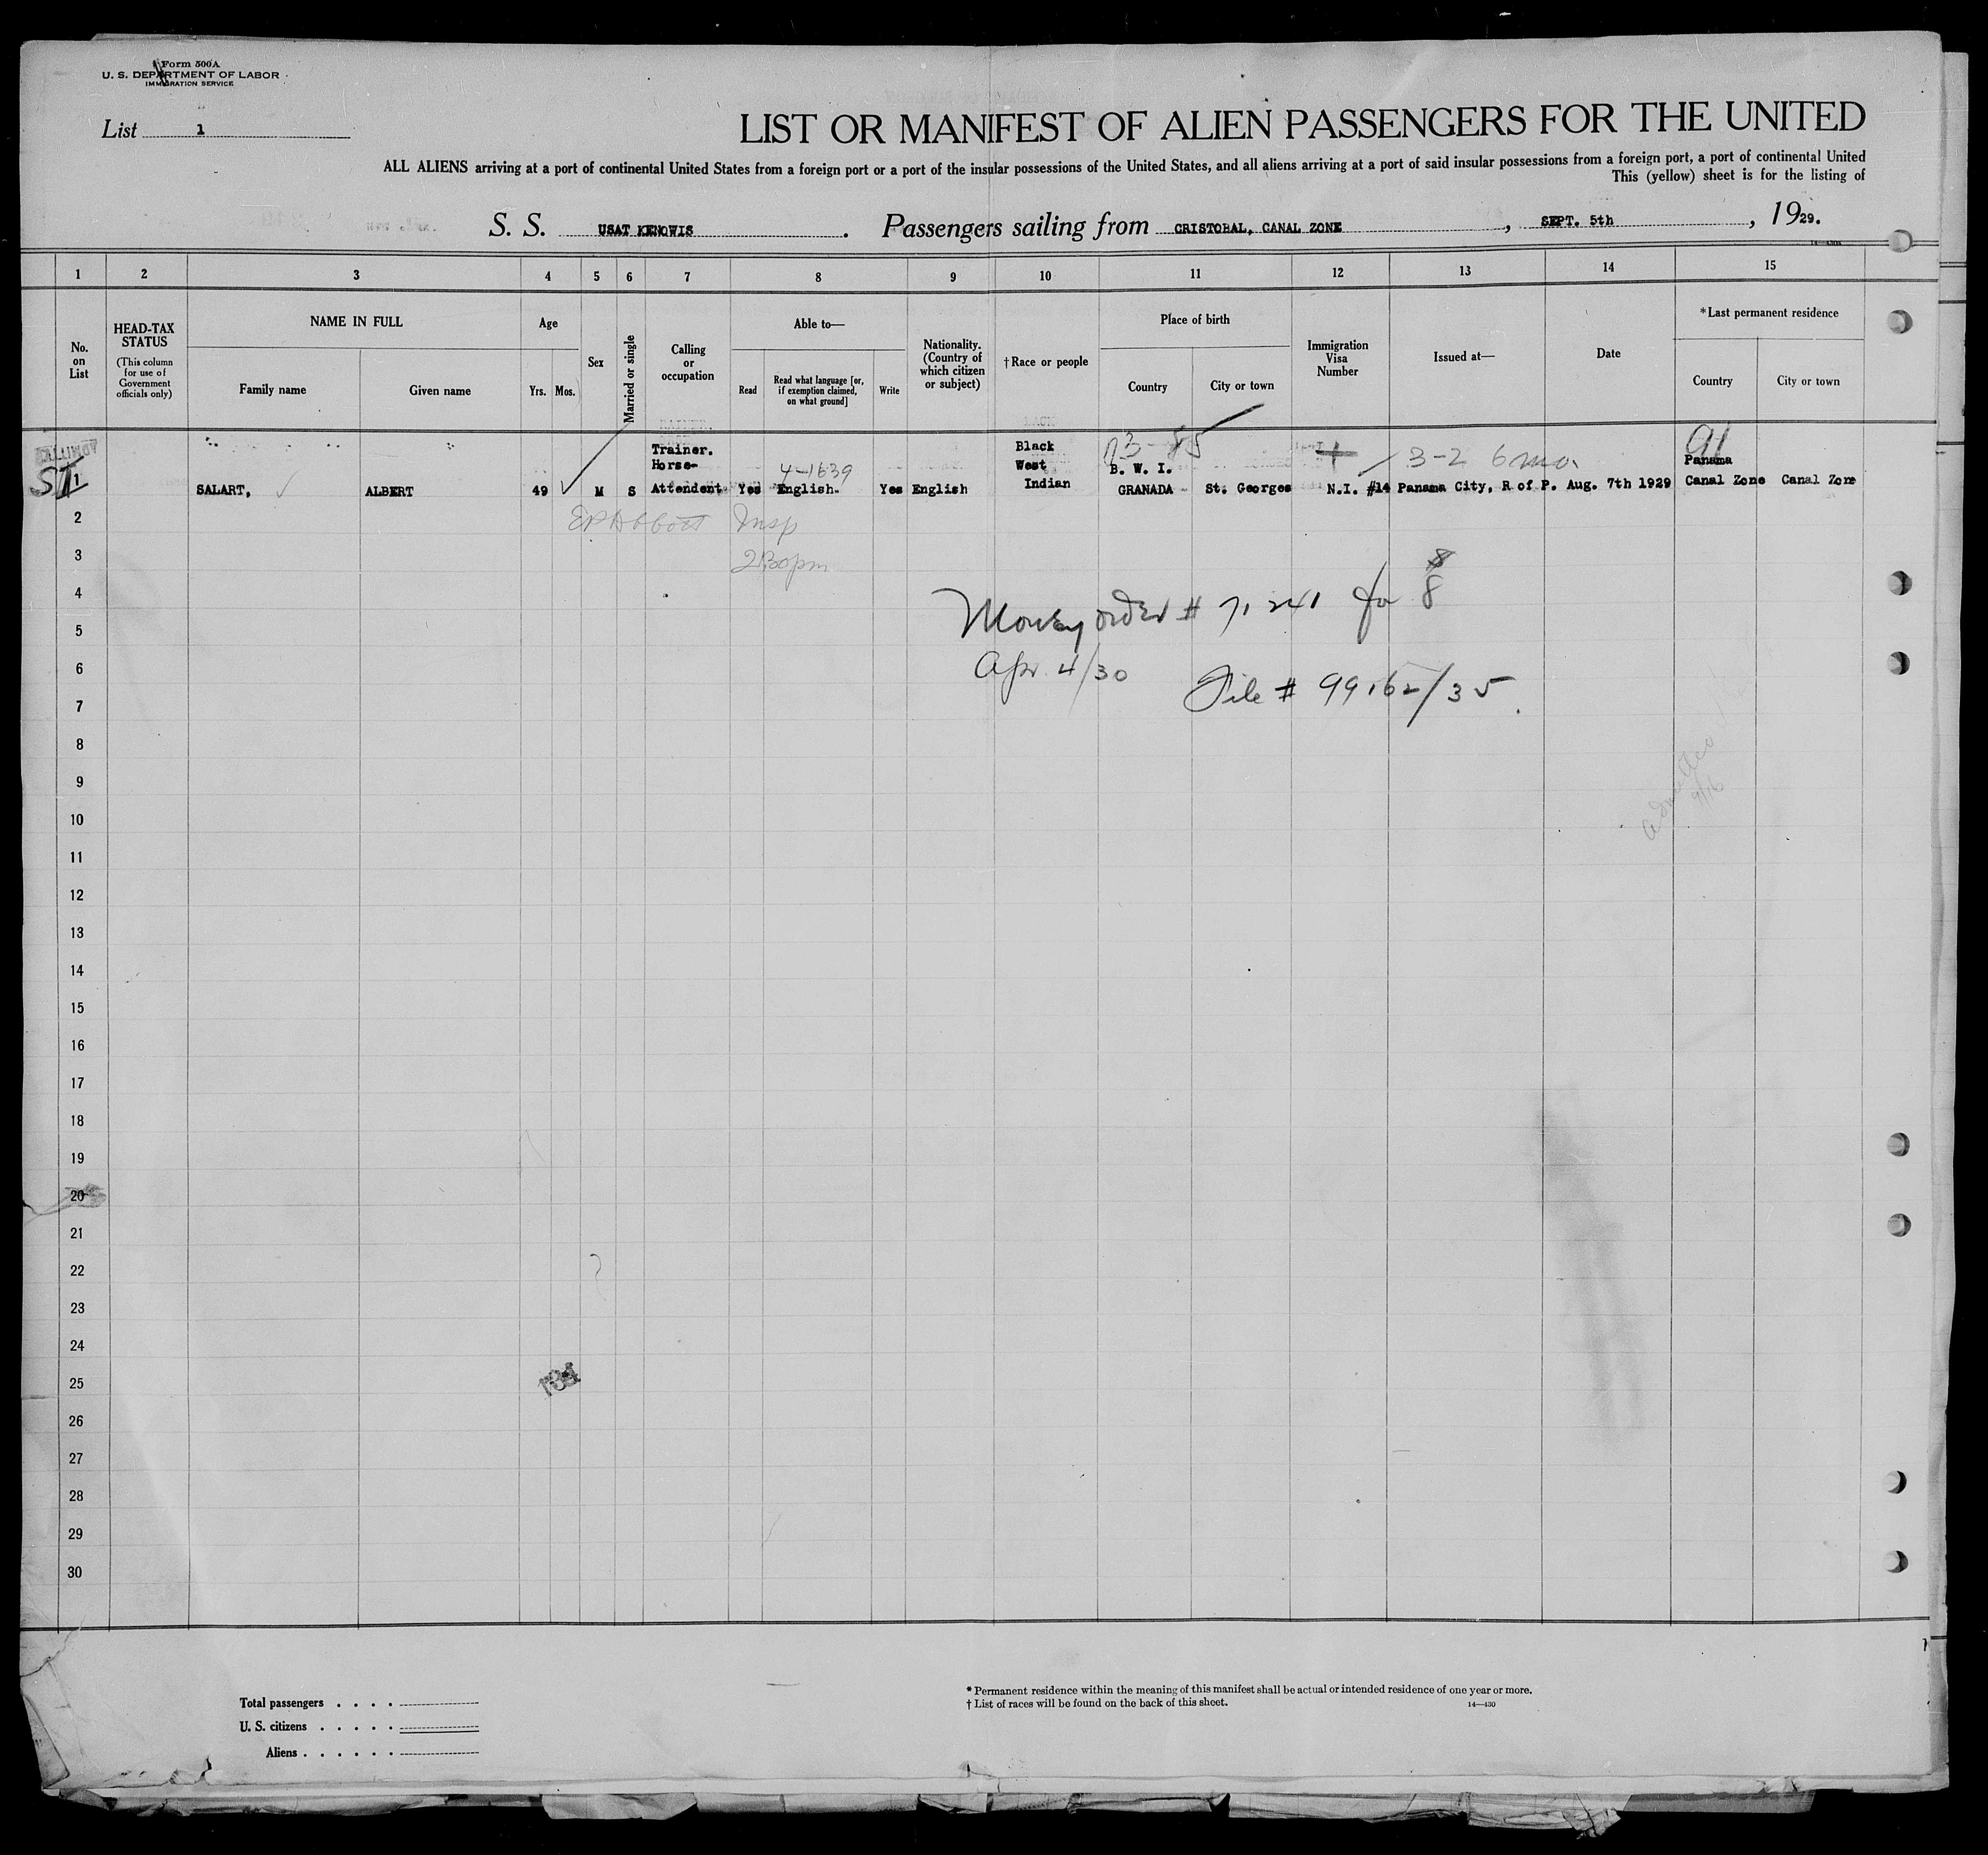 Form 500A
U. S. DEPARTMENT OF LABOR
IMMIGRATION SERVICE
List 1
LIST OR MANIFEST OF ALIEN PASSENGERS FOR THE UNITED
ALL ALIENS arriving at a port of continental United States from a foreign port or a port of the insular possessions of the United States, and all aliens arriving at a port of said insular possessions from a foreign port, a port of continental United
This (yellow) sheet is for the listing of
S. S. USAT KENOWIS . Passengers sailing from CRISTOBAL, CANAL ZONE , SEPT. 5th , 1929.
1 2 3 4 5 6 7 8 9 10 11 12 13 14 15
No. on List
HEAD-TAX STATUS
(This column for use of Government officials only)
NAME IN FULL
Family name
Given name
Age
Yrs. Mos.
Sex
Married or single
Calling or occupation
Able to—
Read
Read what language [or, if exemption claimed, on what ground]
Write
Nationality. (Country of which citizen or subject)
† Race or people
Place of birth
Country
City or town
Immigration Visa Number
Issued at—
Date
*Last permanent residence
Country
City or town
ADMITTED
Trainer. Black 91
Horse- 4-1639 West B. W. I. 3-2 6 mo. Panama
1 SALART, ALBERT 49 M S Attendent Yes English. Yes English Indian GRANADA St. Georges N.I. #14 Panama City, R of P. Aug. 7th 1929 Canal Zone Canal Zone
2 EP Abbott Insp
3 2:30 pm
4 Money order # 71241 for 8
5
6 Apr. 4/30
7 File # 99162/35.
8
9
10
11
12
13
14
15
16
17
18
19
20
21
22
23
24
25
26
27
28
29
30
134
Admitted
9/16
Total passengers
U. S. citizens
Aliens
* Permanent residence within the meaning of this manifest shall be actual or intended residence of one year or more.
† List of races will be found on the back of this sheet. 14—430